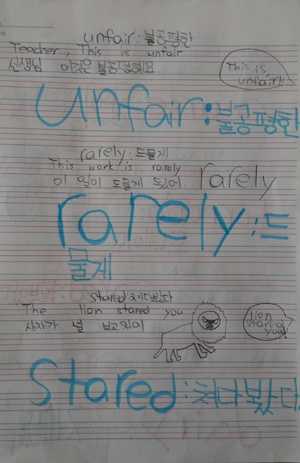 unfair:불공평한
Teacher, This is unfair
선생님 이것은 불공평해요
This is unfair!!
unfair:불공평한
rarely:드물게
This work is rarely
이 일이 드물게 있어
rarely
rarely:드
물게
stared 쳐다봤다
The lion stared you
사자가 널 보고있어
lion stared you!
Stared:쳐다봤다